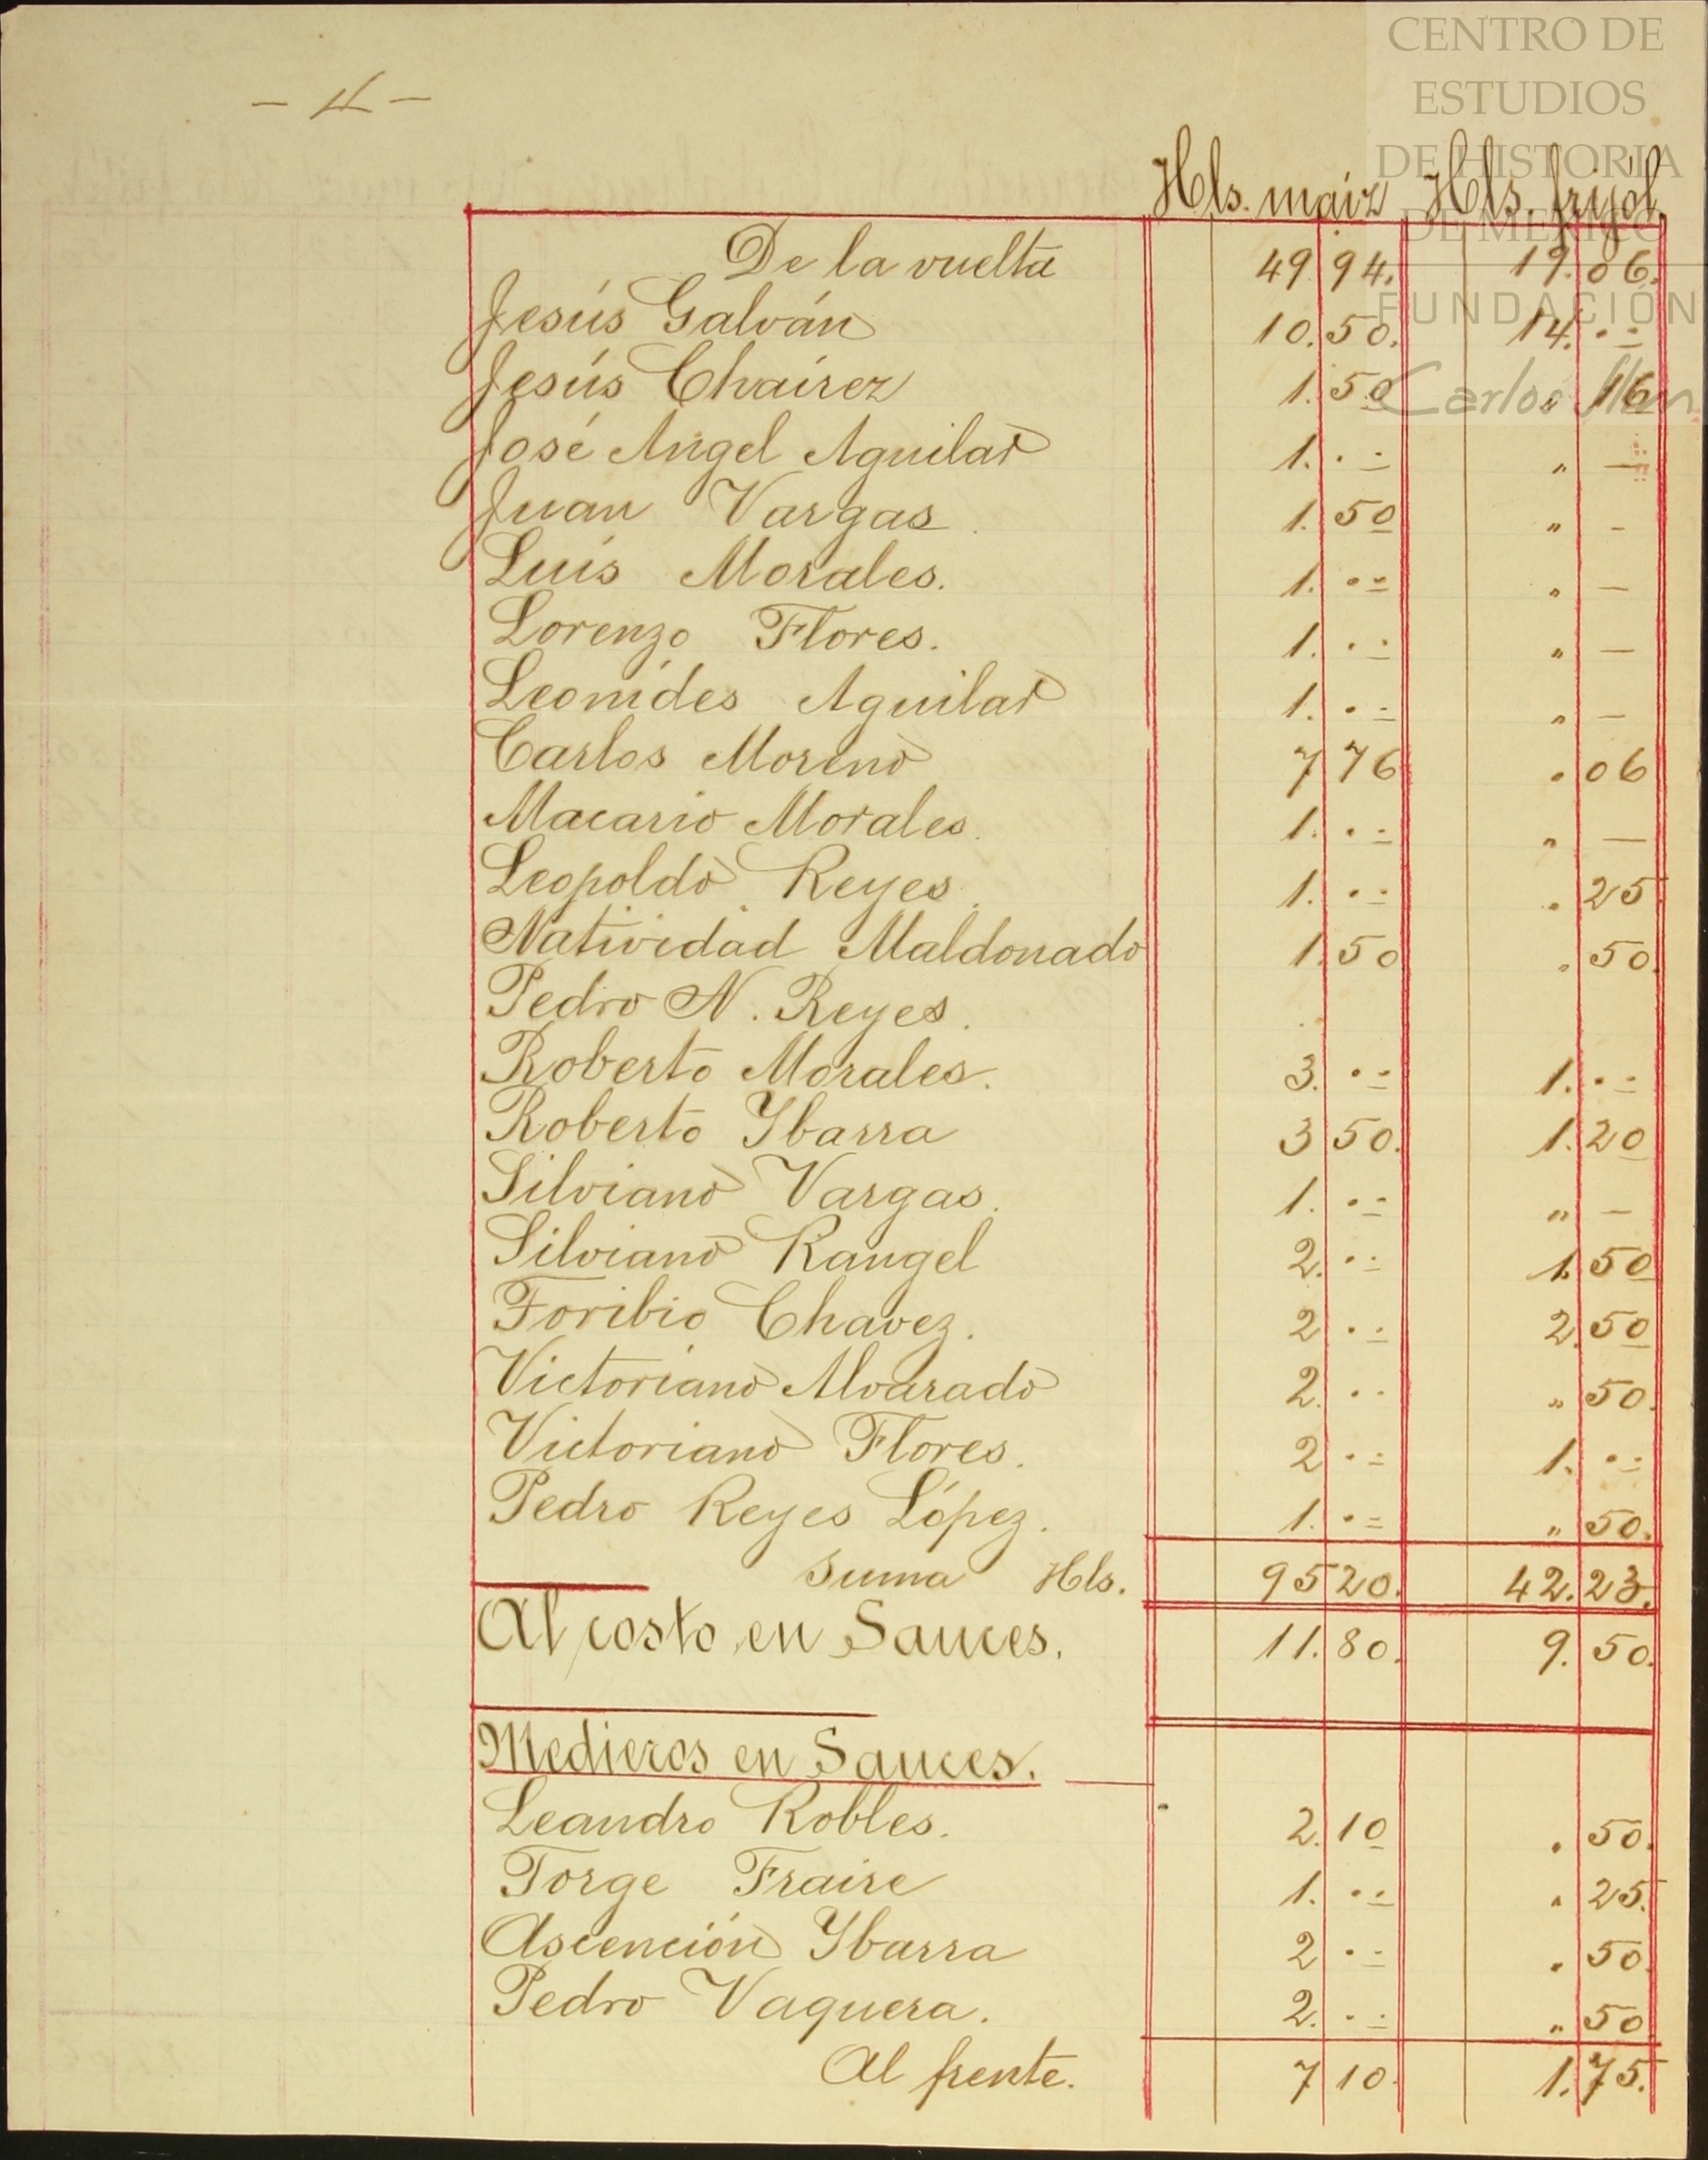 CENTRO DE
ESTUDIOS
DE HISTORIA
DE MÉXICO
FUNDACIÓN
Carlos Slim
- 4 -
Hls. maiz Hls. frijol.
De la vuelta 49 94. 19. 06.
Jesús Galván 10. 50. 14. . =
Jesús Chairez 1. 50 „ 16
José Angel Aguilar 1. . = „ —
Juan Vargas. 1. 50 „ -
Luis Morales. 1. . = „ —
Lorenzo Flores. 1. . = „ —
Leonides Aguilar 1. . = „ —
Carlos Moreno 7 76 . 06
Macario Morales. 1. . = „ —
Leopoldo Reyes. 1. . = . 25
Natividad Maldonado 1. 50 . 50.
Pedro N. Reyes.
Roberto Morales. 3. . = 1. . =
Roberto Ybarra 3 50. 1. 20
Silviano Vargas. 1. . = „ —
Silviano Rangel 2. . = 1. 50
Toribio Chavez. 2 . = 2. 50
Victoriano Alvarado 2. . . „ 50.
Victoriano Flores. 2 . = 1. . =
Pedro Reyes López. 1. . = „ 50.
Suma Hls. 95 20. 42. 23.
Al costo en Sauces. 11. 80. 9. 50.
Medieros en Sauces.
Leandro Robles. 2. 10 . 50.
Jorge Fraire 1. . = . 25.
Ascención Ybarra 2 . = . 50.
Pedro Vaquera. 2. . = „ 50
Al frente. 7 10. 1. 75.